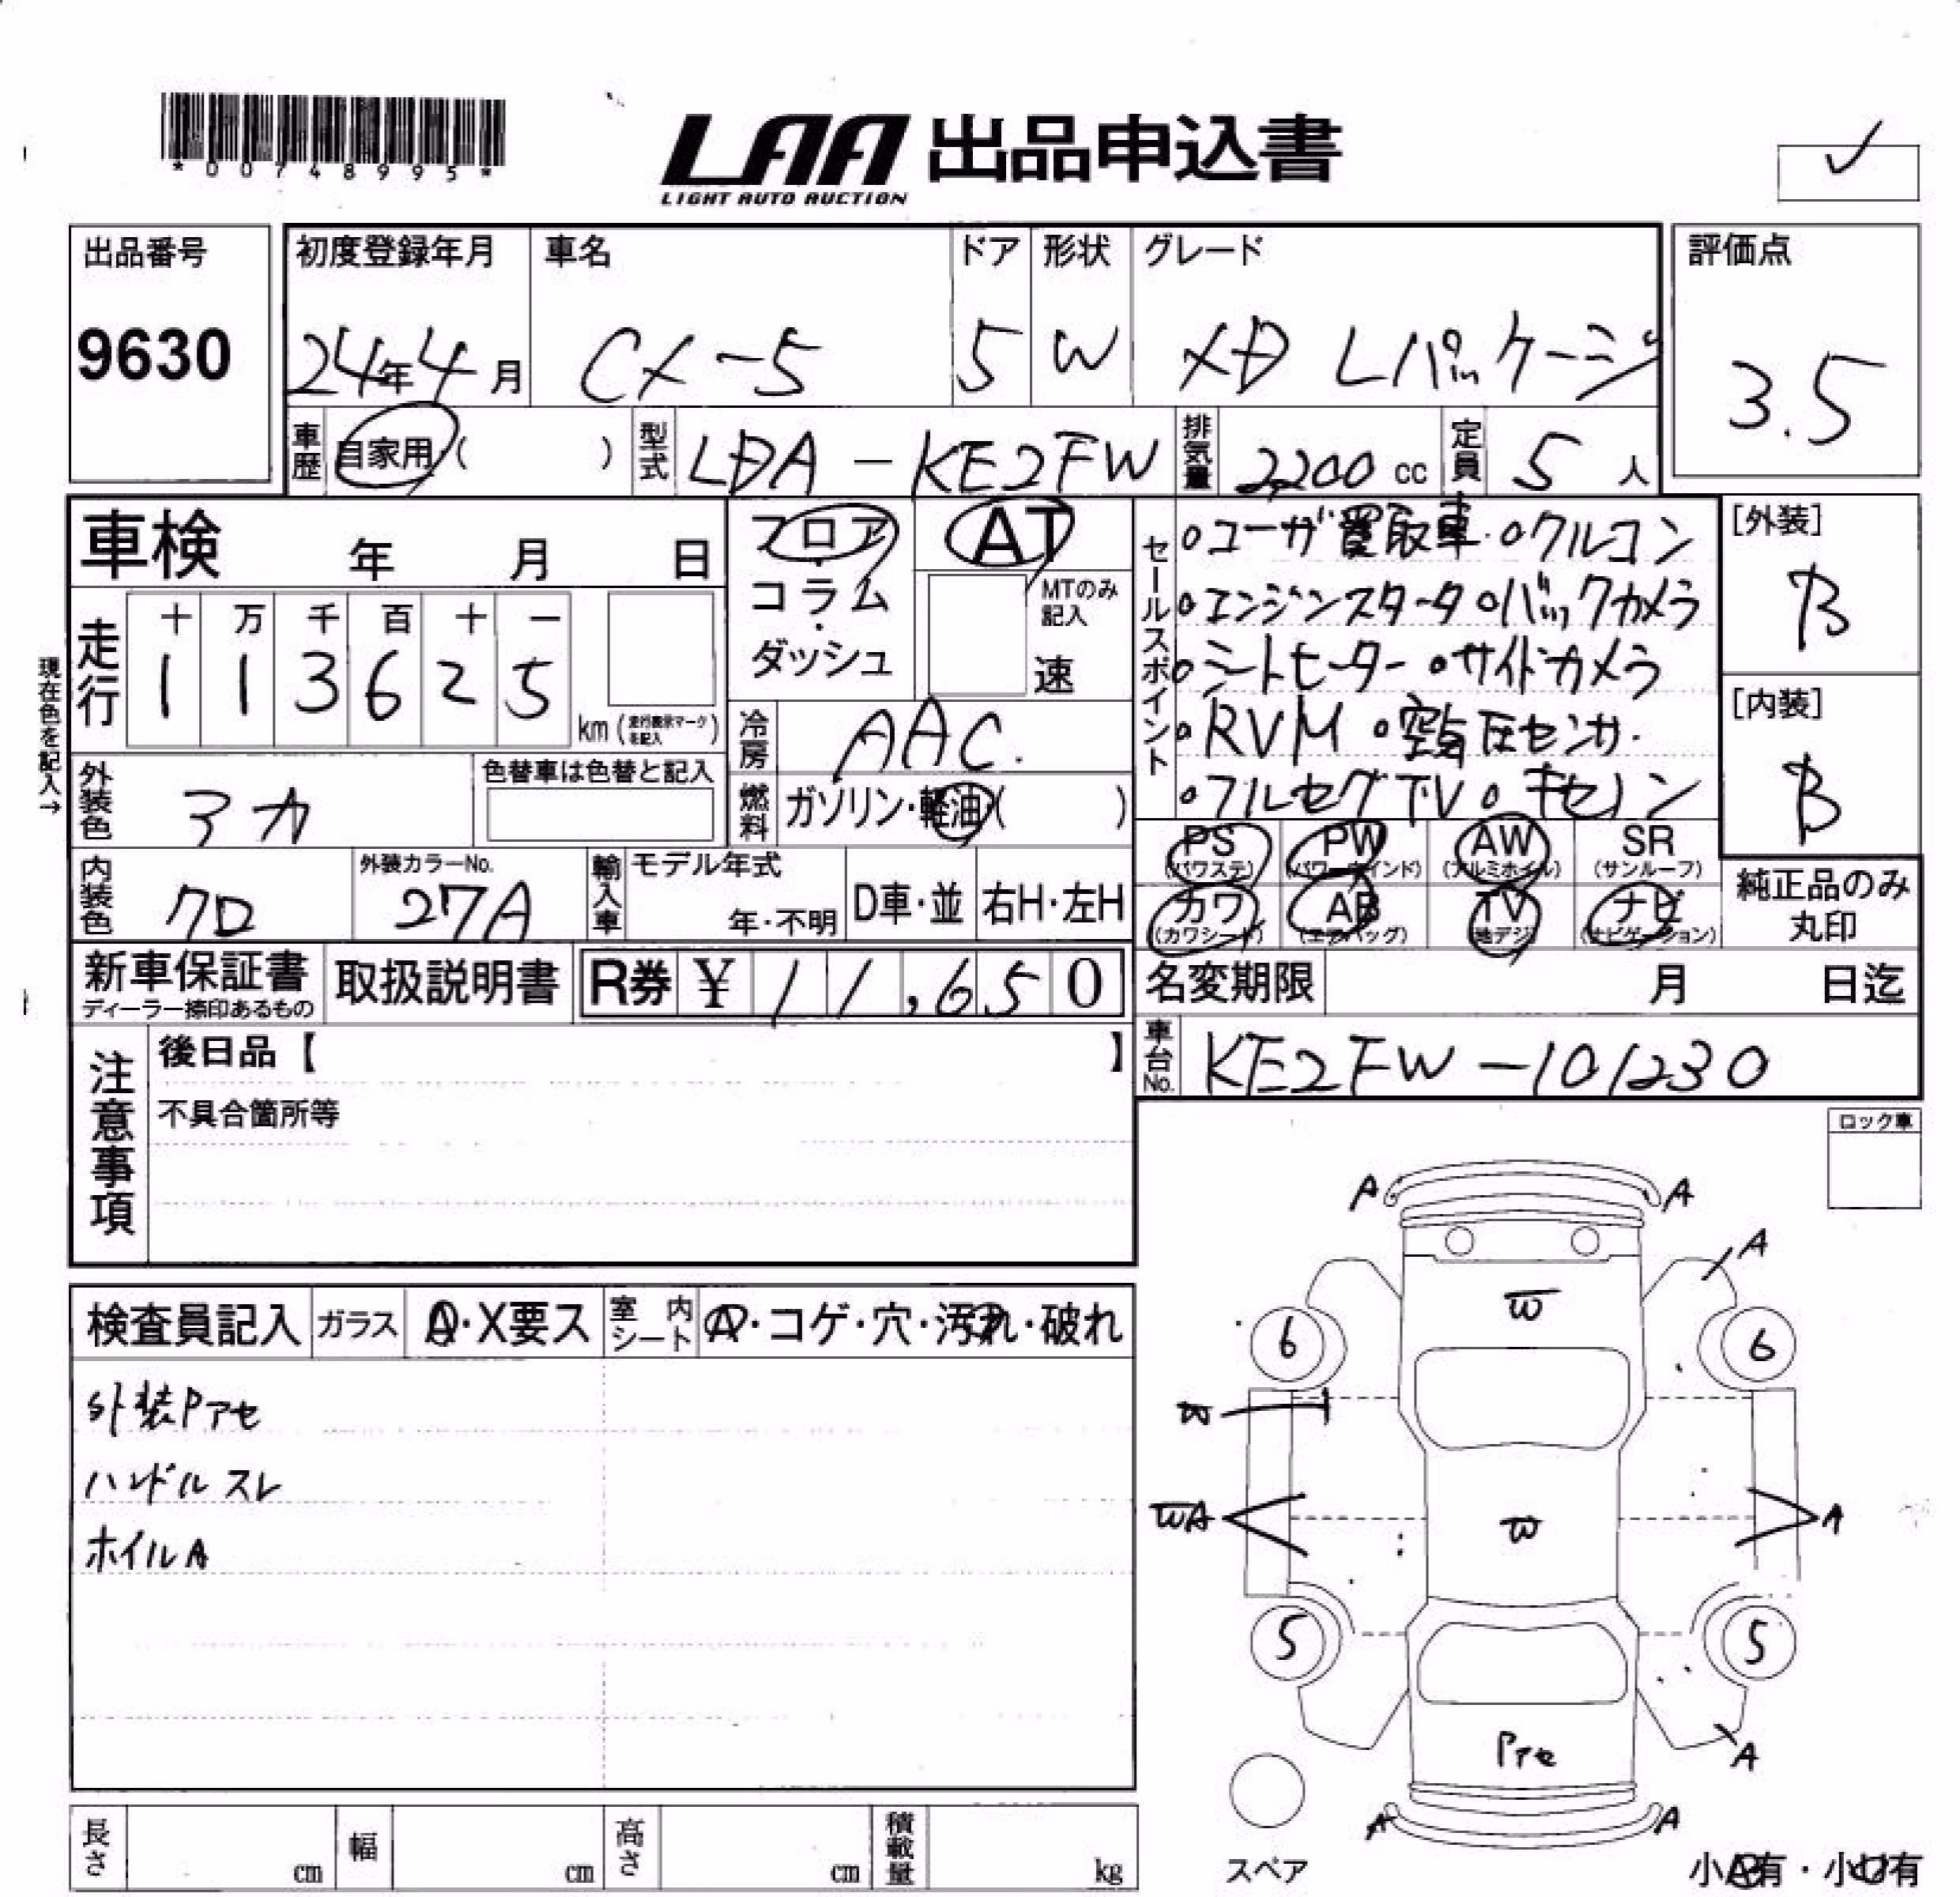 *00748995*
LAA 出品申込書
LIGHT AUTO AUCTION
✓
出品番号
9630
初度登録年月
24年4月
車名
CX-5
ドア
5
形状
W
グレード
XD Lパッケージ
評価点
3.5
車歴
自家用 ( )
型式
LDA - KE2FW
排気量
2,200 cc
定員
5 人
車検 年 月 日
フロア・コラム・ダッシュ
AT
MTのみ記入
速
セールスポイント
・ユーザ買取車 ・クルコン
・エンジンスタータ ・バックカメラ
・シートヒーター ・サイドカメラ
・RVM ・空気圧センサ
・フルセグTV ・キセノン
[外装]
B
[内装]
B
現在色を記入→
走行
十 万 千 百 十 一
1 1 3 6 2 5
km (走行表示マークを記入)
冷房
AAC.
外装色
アカ
色替車は色替と記入
燃料
ガソリン・軽油・( )
PS (パワステ)
PW (パワーウインド)
AW (アルミホイル)
SR (サンルーフ)
カワ (カワシート)
AB (エアバッグ)
TV (地デジ)
ナビ (ナビゲーション)
純正品のみ丸印
内装色
クロ
外装カラーNo.
27A
輸入車
モデル年式
年・不明
D車・並
右H・左H
新車保証書
ディーラー捺印あるもの
取扱説明書
R券 ¥ 11,650
名変期限 月 日迄
車台No.
KE2FW-101230
注意事項
後日品【 】
不具合箇所等
ロック車
検査員記入
ガラス
A・X要ス
室内シート
A・コゲ・穴・汚れ・破れ
外装Pアセ
ハンドルスレ
ホイルA
A A
A
W
6 6
W
WA A
W
5 5
Pアセ
A
A A
スペア
小AB有・小U有
長さ cm
幅 cm
高さ cm
積載量 kg